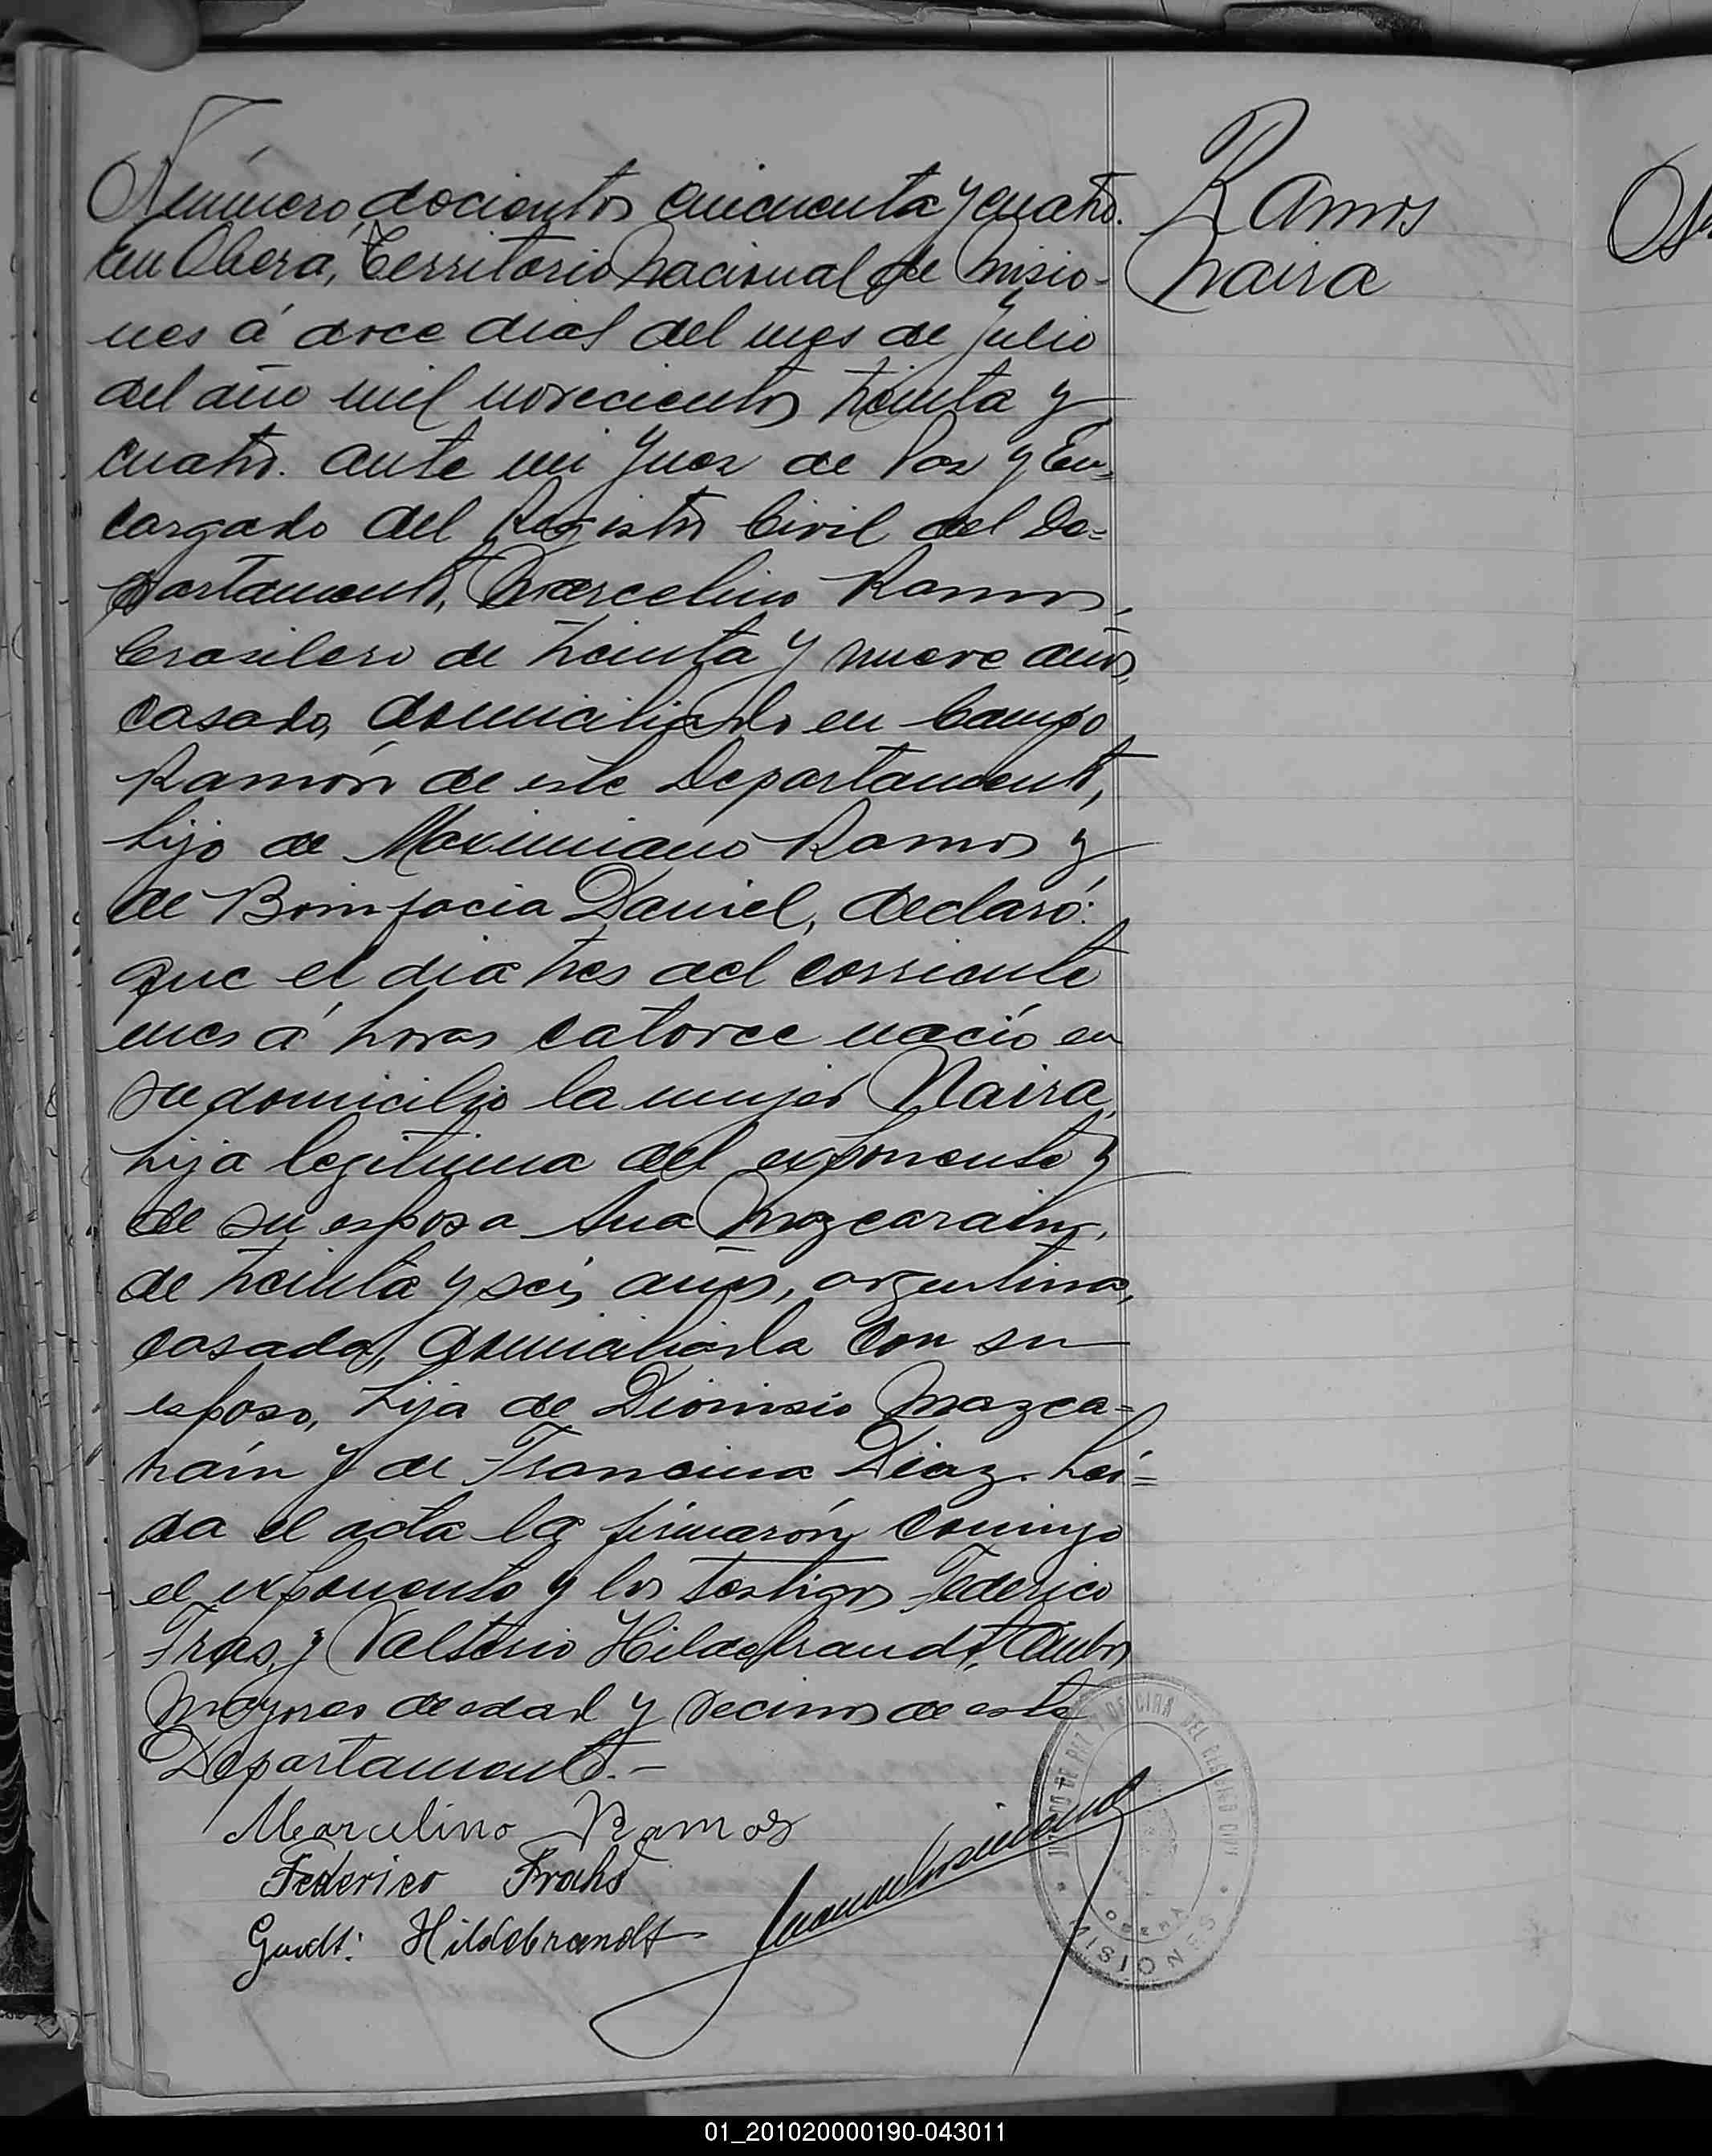 Número, docientos cincuenta y cuatro.
En Oberá, Territorio Nacional de Misio-
nes á doce dias del mes de Julio
del año mil novecientos treinta y
cuatro. ante mi Juez de Paz y En-
cargado del Registro Civil del De=
partamento, Marcelino Ramos,
brasilero de treinta y nueve años,
casado, domiciliado en Campo
Ramón de este Departamento,
hijo de Maximiano Ramos y
de Bonifacia Daniel, declaró:
que el dia tres del corriente
mes á horas catorce nació en
su domicilio la mujer Naira,
hija legitima del exponente y
de su esposa Ana Mazcarain,
de treinta y seis años, argentina,
casada, domiciliada con su
esposo, hija de Dionisio Mazca=
rain y de Francisca Diaz. Leí=
da el acta la firmarón conmigo
el exponente y los testigos Federico
y Hildebrandt, ambos
mayores de edad y vecinos de este
Departamento.-
Marcelino Ramos
Federico
Hildebrandt
Ramos
Naira
JUZGADO DE PAZ Y OFICINA DEL REGISTRO CIVIL
OBERA
MISIONES
01_201020000190-043011